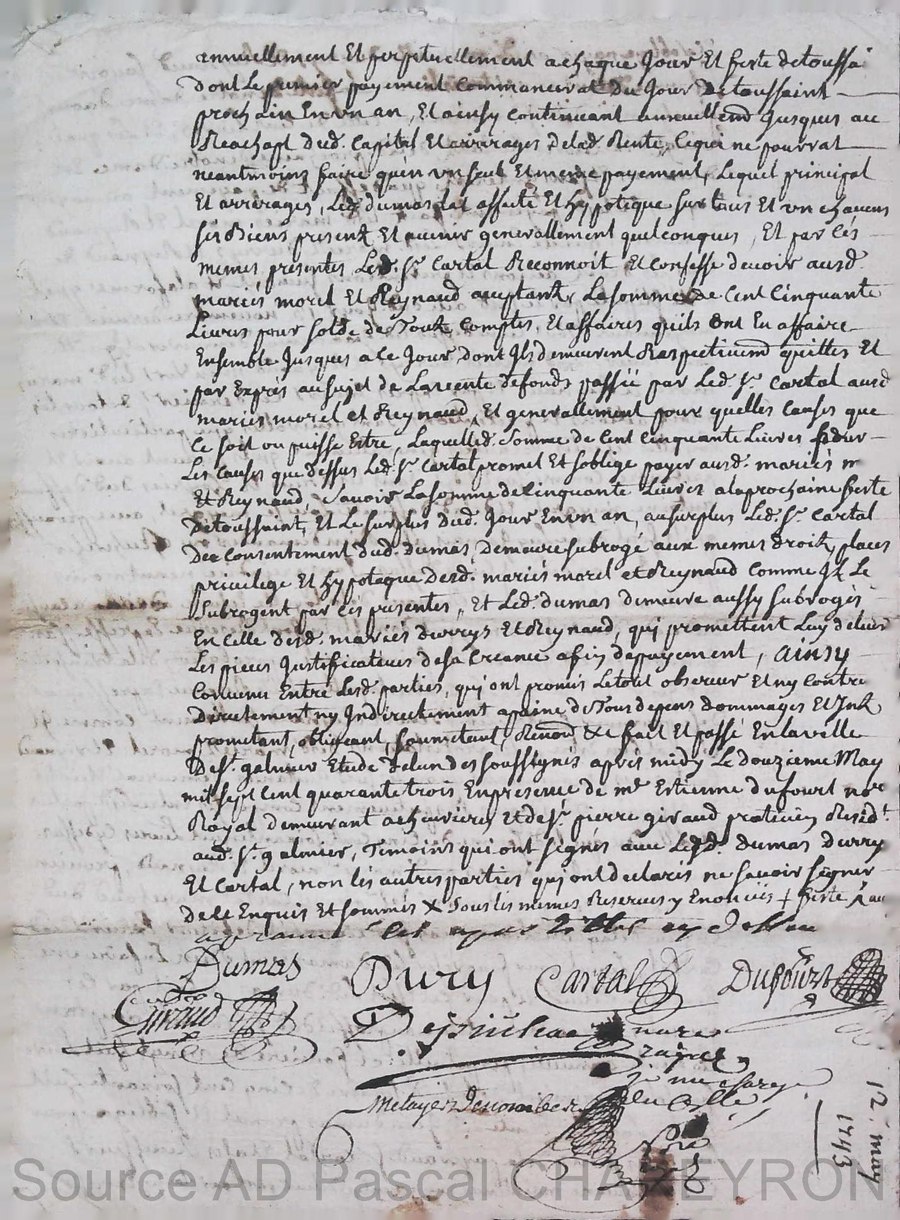 annuellement Et perpetuellement achaque Jour Et feste detoussa
dont Le premier payement Commancerat Du Jour Detoussaint
proch Lin En un an, Et ainsy Continuant annuellemt Jusques au
Reachapt Dud. Capital Et arrerages Delad. Rente, Cequi ne pourrat
neantmoins faire quen un Seul Et meme payement, Lequel principal
Et arrerages, Led. Dumas Lat affecté Et hypoteque Sur tous Et un chacuns
Ses Biens present Et avenir generallement quelconques, Et par Ces
memes presentes Led. Sr. Cartal Reconnoit Et Confesse devoir ausd.
mariés morel Et Reynaud acceptants, La somme de Cent Cinquante
Livres pour solde de Touts Comptes, Et affaires quils ont Eu affaire
Ensemble Jusques a Ce Jour dont Ils demeurent Respectivemt quittes Et
par Exprés au Sujet de La vente defonds passée par Led. Sr. Cartal ausd
mariés morel et Reynaud, Et generallement pour quelles Causes que
Ce soit ou puisse Estre, Laquelled. Somme de Cent Cinquante Livres
Les Causes que Dessus Led. Sr. Cartal promet Et soblige payer ausd. mariés m
Et Reynaud, Savoir La somme de Cinquante Livres a la prochaine feste
Detoussaint, Et Le Surplus dud. Jour En un an, au surplus Led. Sr. Cartal
Du Consentement dud. Dumas, Demeure Subrogé aux memes droits, places
privilege Et hypoteque Desd. mariés morel et Reynaud Comme Ils Le
Subrogent par Ces presentes, Et Led. Dumas demeure aussy Subrogé
En Celle desd. mariés durrys Et Reynaud, qui promettent Luy
Les pieces Justificatives desa Creance afin depayement, ainsy
Convenu Entre Lesd. parties, qui ont promis Letout observer Et ny Contre
Directement ny Indirectement apaine de Tous depens dommages Et Int
prometant, obligeant, soumetant, Renonc. &c fait Et passé En laville
De St. galmier Etude delun des soussignés aprés midy Le douzieme May
mil sept cent quarante trois En presence de me Estienne dufourt nore
Royal demeurant achevrieres Et de Sr. pierre giraud praticien Residt.
aud. St. galmier, Temoins qui ont signés avec Lesd. Dumas Durry
Et Cartal, non Les autres parties qui ont declarés ne savoir signer
De Ce Enquis Et sommés X Tous les memes Reserves y Enoncées +
Dumas
Dury
Cartal
Dufourt
Giraud
12. may
1743
Source AD Pascal CHAMBEYRON